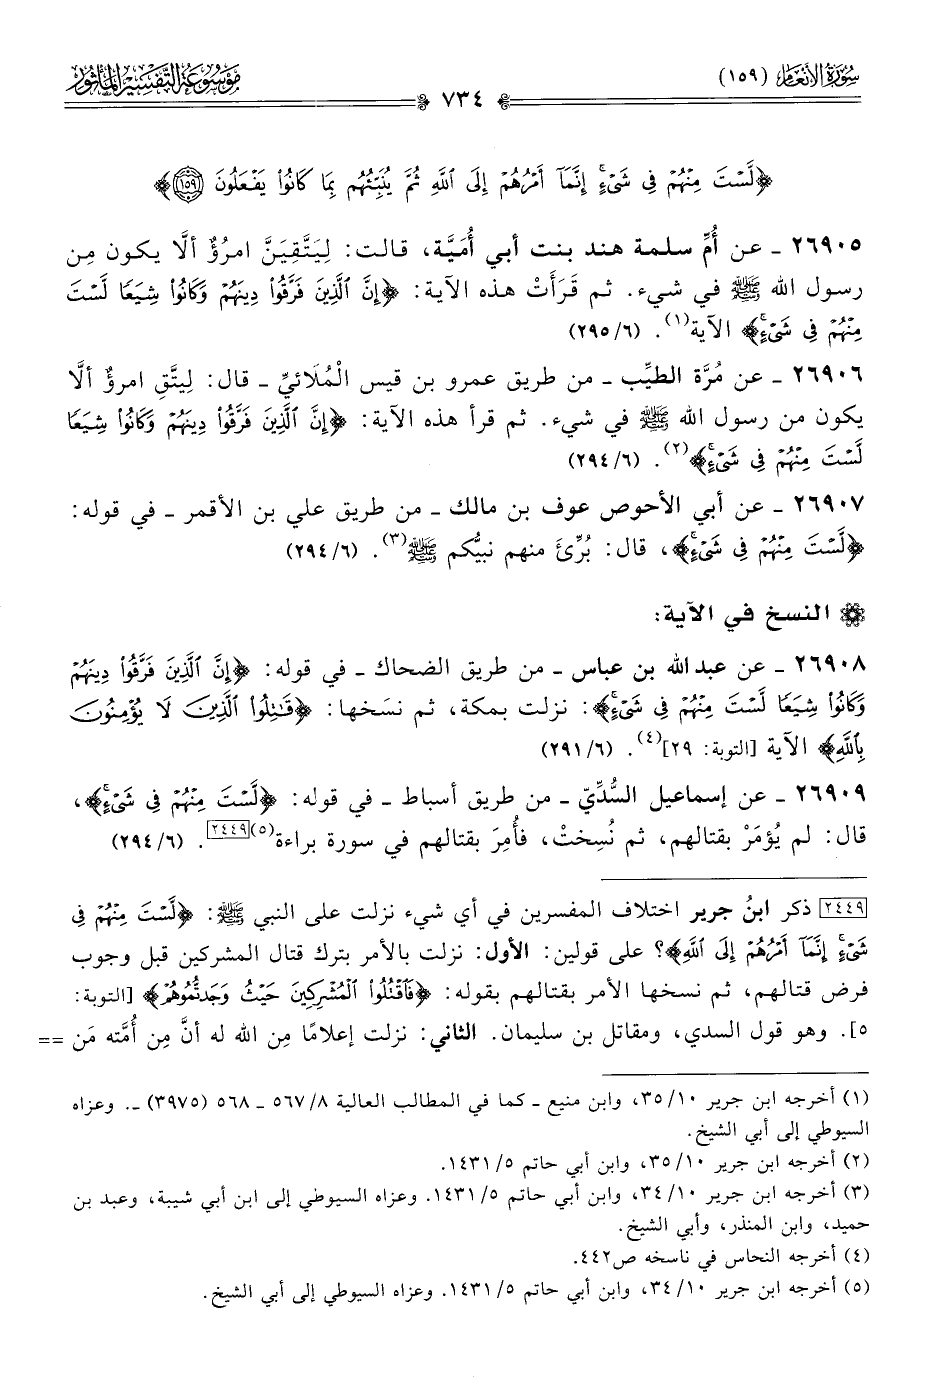 سُورَةُ الأَنْعَام (١٥٩)
٧٣٤
مَوْسُوعَة التَّفْسِير المَأْثُور
﴿لَّسْتَ مِنْهُمْ فِي شَيْءٍ إِنَّمَا أَمْرُهُمْ إِلَى اللَّهِ ثُمَّ يُنَبِّئُهُم بِمَا كَانُوا يَفْعَلُونَ ١٥٩﴾
٢٦٩٠٥ ـ عن أُمِّ سلمة هند بنت أبي أُمَيَّة، قالت: لِيَتَّقِيَنَّ امرُؤٌ ألَّا يكون مِن
رسول الله ﷺ في شيء. ثم قَرَأَتْ هذه الآية: ﴿إِنَّ الَّذِينَ فَرَّقُوا دِينَهُمْ وَكَانُوا شِيَعًا لَّسْتَ
مِنْهُمْ فِي شَيْءٍ﴾ الآية(١). (٦/ ٢٩٥)
٢٦٩٠٦ ـ عن مُرَّة الطيِّب ـ من طريق عمرو بن قيس الْمُلَائيِّ ـ قال: لِيتَّقِ امرؤٌ ألَّا
يكون من رسول الله ﷺ في شيء. ثم قرأ هذه الآية: ﴿إِنَّ الَّذِينَ فَرَّقُوا دِينَهُمْ وَكَانُوا شِيَعًا
لَّسْتَ مِنْهُمْ فِي شَيْءٍ﴾(٢). (٦/ ٢٩٤)
٢٦٩٠٧ ـ عن أبي الأحوص عوف بن مالك ـ من طريق علي بن الأقمر ـ في قوله:
﴿لَّسْتَ مِنْهُمْ فِي شَيْءٍ﴾، قال: بُرِّئَ منهم نبيُّكم ﷺ(٣). (٦/ ٢٩٤)
النسخ في الآية:
٢٦٩٠٨ ـ عن عبد الله بن عباس ـ من طريق الضحاك ـ في قوله: ﴿إِنَّ الَّذِينَ فَرَّقُوا دِينَهُمْ
وَكَانُوا شِيَعًا لَّسْتَ مِنْهُمْ فِي شَيْءٍ﴾: نزلت بمكة، ثم نسَخها: ﴿قَاتِلُوا الَّذِينَ لَا يُؤْمِنُونَ
بِاللَّهِ﴾ الآية [التوبة: ٢٩](٤). (٦/ ٢٩١)
٢٦٩٠٩ ـ عن إسماعيل السُّدِّيِّ ـ من طريق أسباط ـ في قوله: ﴿لَّسْتَ مِنْهُمْ فِي شَيْءٍ﴾،
قال: لم يُؤمَرْ بقتالهم، ثم نُسِختْ، فأُمِرَ بقتالهم في سورة براءة(٥)[٢٤٤٩]. (٦/ ٢٩٤)
[٢٤٤٩] ذكر ابنُ جرير اختلاف المفسرين في أي شيء نزلت على النبي ﷺ: ﴿لَّسْتَ مِنْهُمْ فِي
شَيْءٍ إِنَّمَا أَمْرُهُمْ إِلَى اللَّهِ﴾؟ على قولين: الأول: نزلت بالأمر بترك قتال المشركين قبل وجوب
فرض قتالهم، ثم نسخها الأمر بقتالهم بقوله: ﴿فَاقْتُلُوا الْمُشْرِكِينَ حَيْثُ وَجَدتُّمُوهُمْ﴾ [التوبة:
٥]. وهو قول السدي، ومقاتل بن سليمان. الثاني: نزلت إعلامًا مِن الله له أنَّ مِن أُمَّته مَن ==
(١) أخرجه ابن جرير ١٠/ ٣٥، وابن منيع ـ كما في المطالب العالية ٨/ ٥٦٧ ـ ٥٦٨ (٣٩٧٥) ـ. وعزاه
السيوطي إلى أبي الشيخ.
(٢) أخرجه ابن جرير ١٠/ ٣٥، وابن أبي حاتم ٥/ ١٤٣١.
(٣) أخرجه ابن جرير ١٠/ ٣٤، وابن أبي حاتم ٥/ ١٤٣١. وعزاه السيوطي إلى ابن أبي شيبة، وعبد بن
حميد، وابن المنذر، وأبي الشيخ.
(٤) أخرجه النحاس في ناسخه ص٤٤٢.
(٥) أخرجه ابن جرير ١٠/ ٣٤، وابن أبي حاتم ٥/ ١٤٣١. وعزاه السيوطي إلى أبي الشيخ.